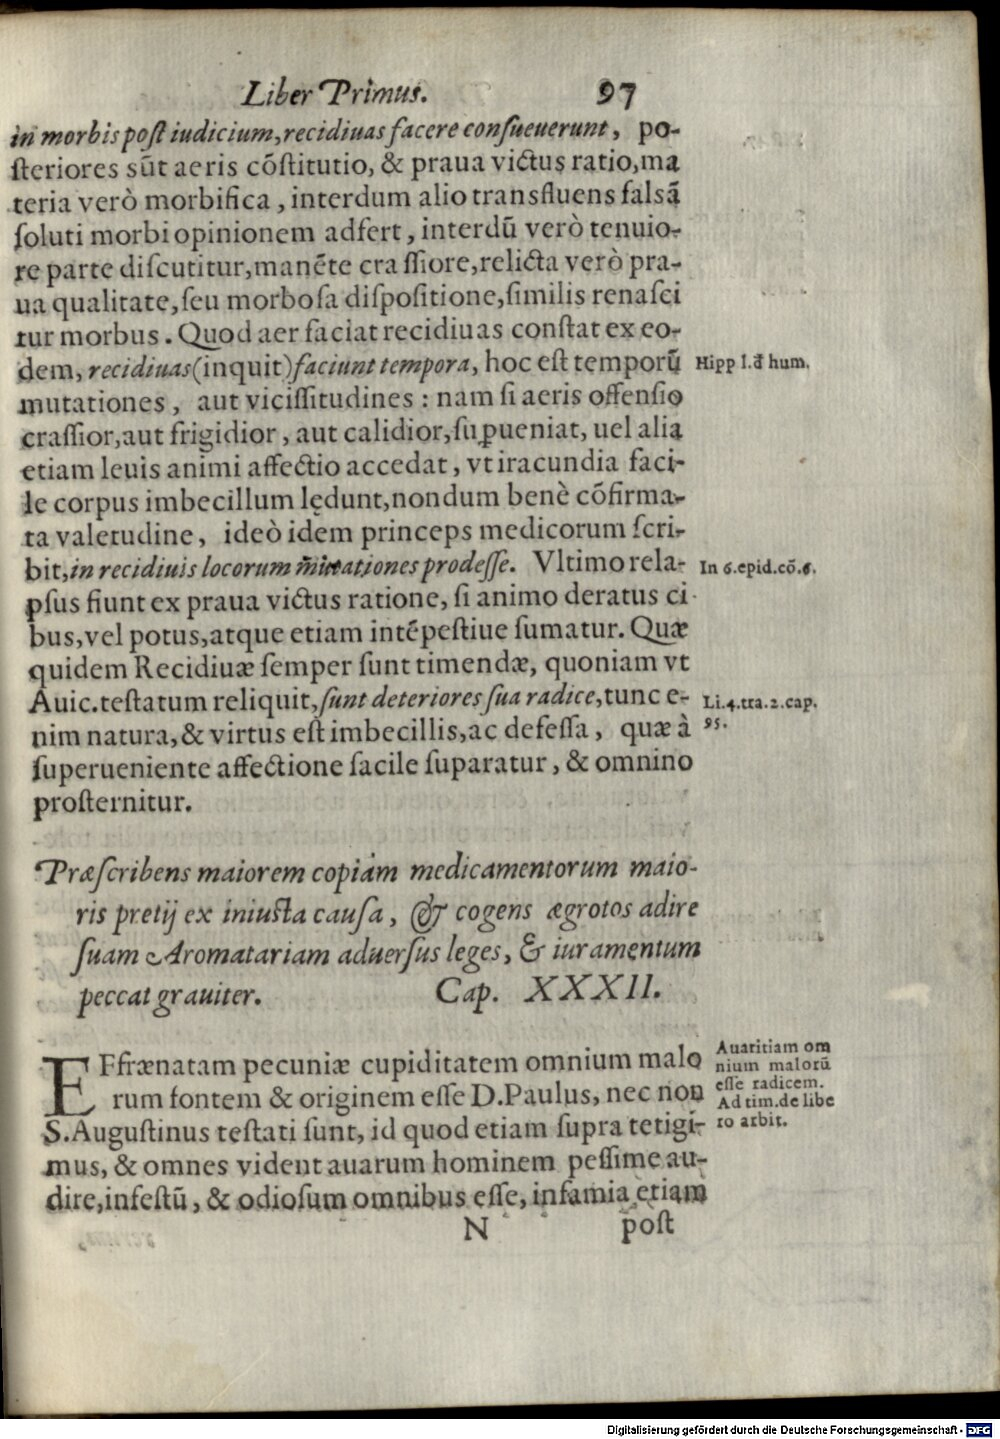 Liber Primus. 97
in morbis post iudicium, recidiuas facere consueuerunt, po-
steriores sūt aeris cōstitutio, & praua victus ratio, ma
teria verò morbifica, interdum alio transfluens falsā
soluti morbi opinionem adfert, interdū verò tenuio-
re parte discutitur, manēte crassiore, relicta verò pra-
ua qualitate, seu morbosa dispositione, similis renasci
tur morbus. Quod aer faciat recidiuas constat ex eo-
dem, recidiuas (inquit) faciunt tempora, hoc est temporū
Hipp l.d̄ hum.
mutationes, aut vicissitudines: nam si aeris offensio
crassior, aut frigidior, aut calidior, suꝑueniat, uel alia
etiam leuis animi affectio accedat, vt iracundia faci-
le corpus imbecillum lędunt, nondum benè cōfirma-
ta valetudine, ideò idem princeps medicorum scri-
bit, in recidiuis locorum mutationes prodesse. Vltimo rela-
In 6.epid.cō.6.
psus fiunt ex praua victus ratione, si animo deratus ci
bus, vel potus, atque etiam intēpestiue sumatur. Quæ
quidem Recidiuæ semper sunt timendæ, quoniam vt
Auic. testatum reliquit, sunt deteriores sua radice, tunc e-
Li.4.tra.2.cap.
95.
nim natura, & virtus est imbecillis, ac defessa, quæ à
superueniente affectione facile suparatur, & omnino
prosternitur.
Præscribens maiorem copiam medicamentorum maio-
ris pretij ex iniusta causa, & cogens ægrotos adire
suam Aromatariam aduersus leges, & iuramentum
peccat grauiter. Cap. XXXII.
EFfrænatam pecuniæ cupiditatem omnium malo
rum fontem & originem esse D. Paulus, nec non
S. Augustinus testati sunt, id quod etiam supra tetigi-
mus, & omnes vident auarum hominem pessime au-
dire, infestū, & odiosum omnibus esse, infamia etiam
Auaritiam om
nium malorū
esse radicem.
Ad tim.de libe
ro arbit.
N post
Digitalisierung gefördert durch die Deutsche Forschungsgemeinschaft - DFG